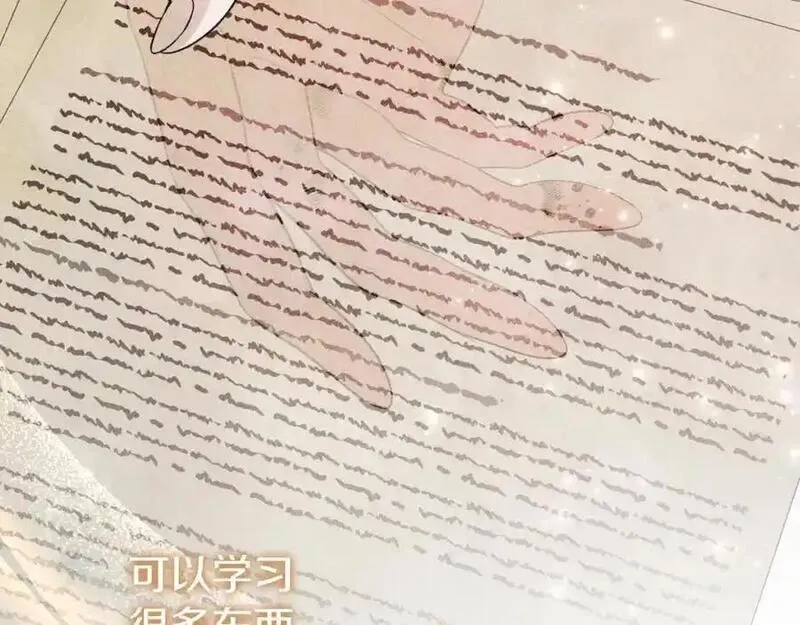 可以学习
很多东西